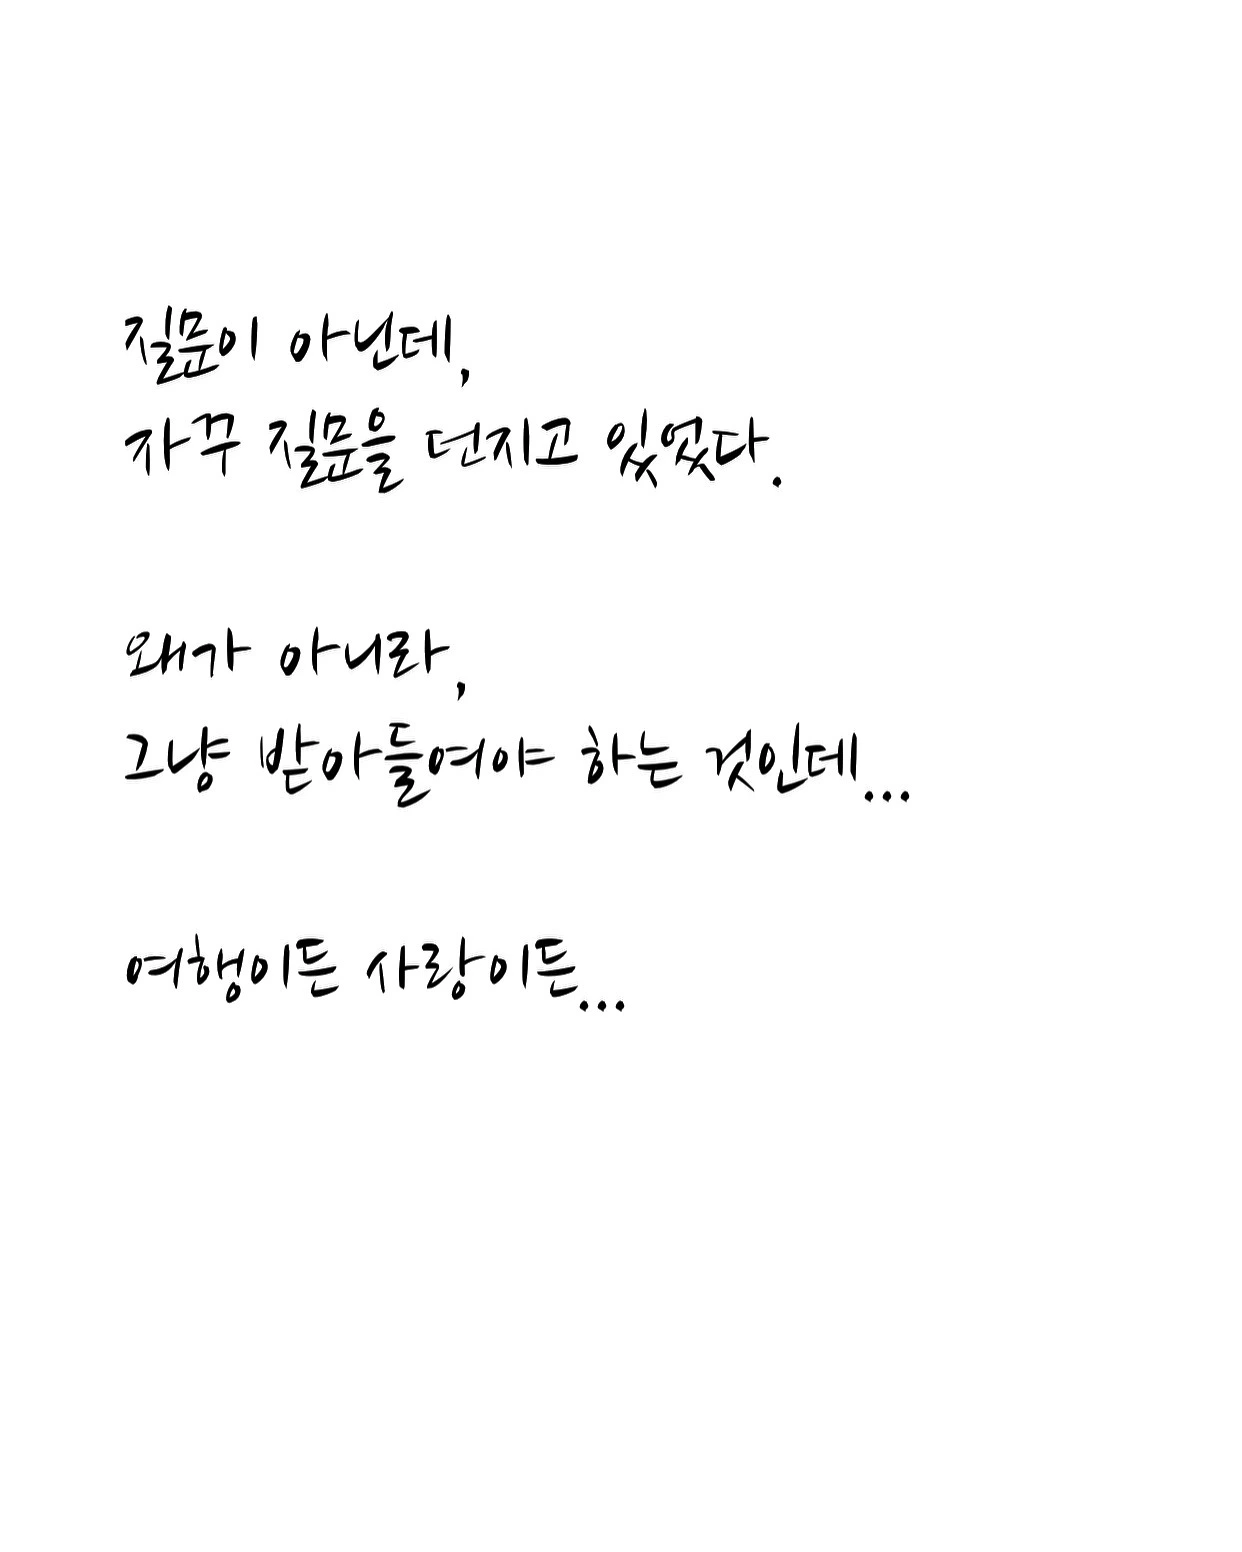 질문이 아닌데,
자꾸 질문을 던지고 있었다.
왜가 아니라,
그냥 받아들여야 하는 것인데...
여행이든 사랑이든...